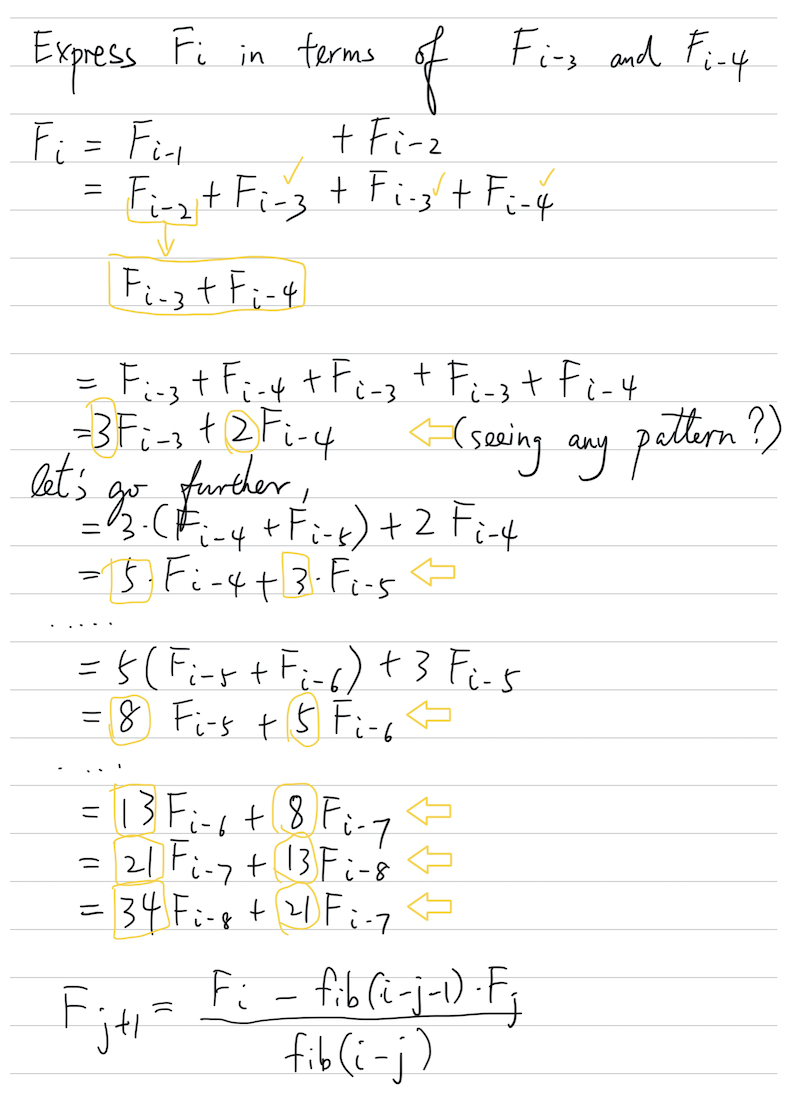 Express Fi in terms of Fi-3 and Fi-4
Fi = Fi-1 + Fi-2
= Fi-2 + Fi-3 ✓ + Fi-3 ✓ + Fi-4 ✓
Fi-3 + Fi-4
= Fi-3 + Fi-4 + Fi-3 + Fi-3 + Fi-4
= 3Fi-3 + 2Fi-4 ⇦ (seeing any pattern?)
let's go further,
= 3·(Fi-4 + Fi-5) + 2 Fi-4
= 5·Fi-4 + 3·Fi-5 ⇦
.....
= 5(Fi-5 + Fi-6) + 3 Fi-5
= 8 Fi-5 + 5 Fi-6 ⇦
.....
= 13 Fi-6 + 8 Fi-7 ⇦
= 21 Fi-7 + 13 Fi-8 ⇦
= 34 Fi-8 + 21 Fi-7 ⇦
Fj+1 = (Fi - fib(i-j-1)·Fj) / fib(i-j)